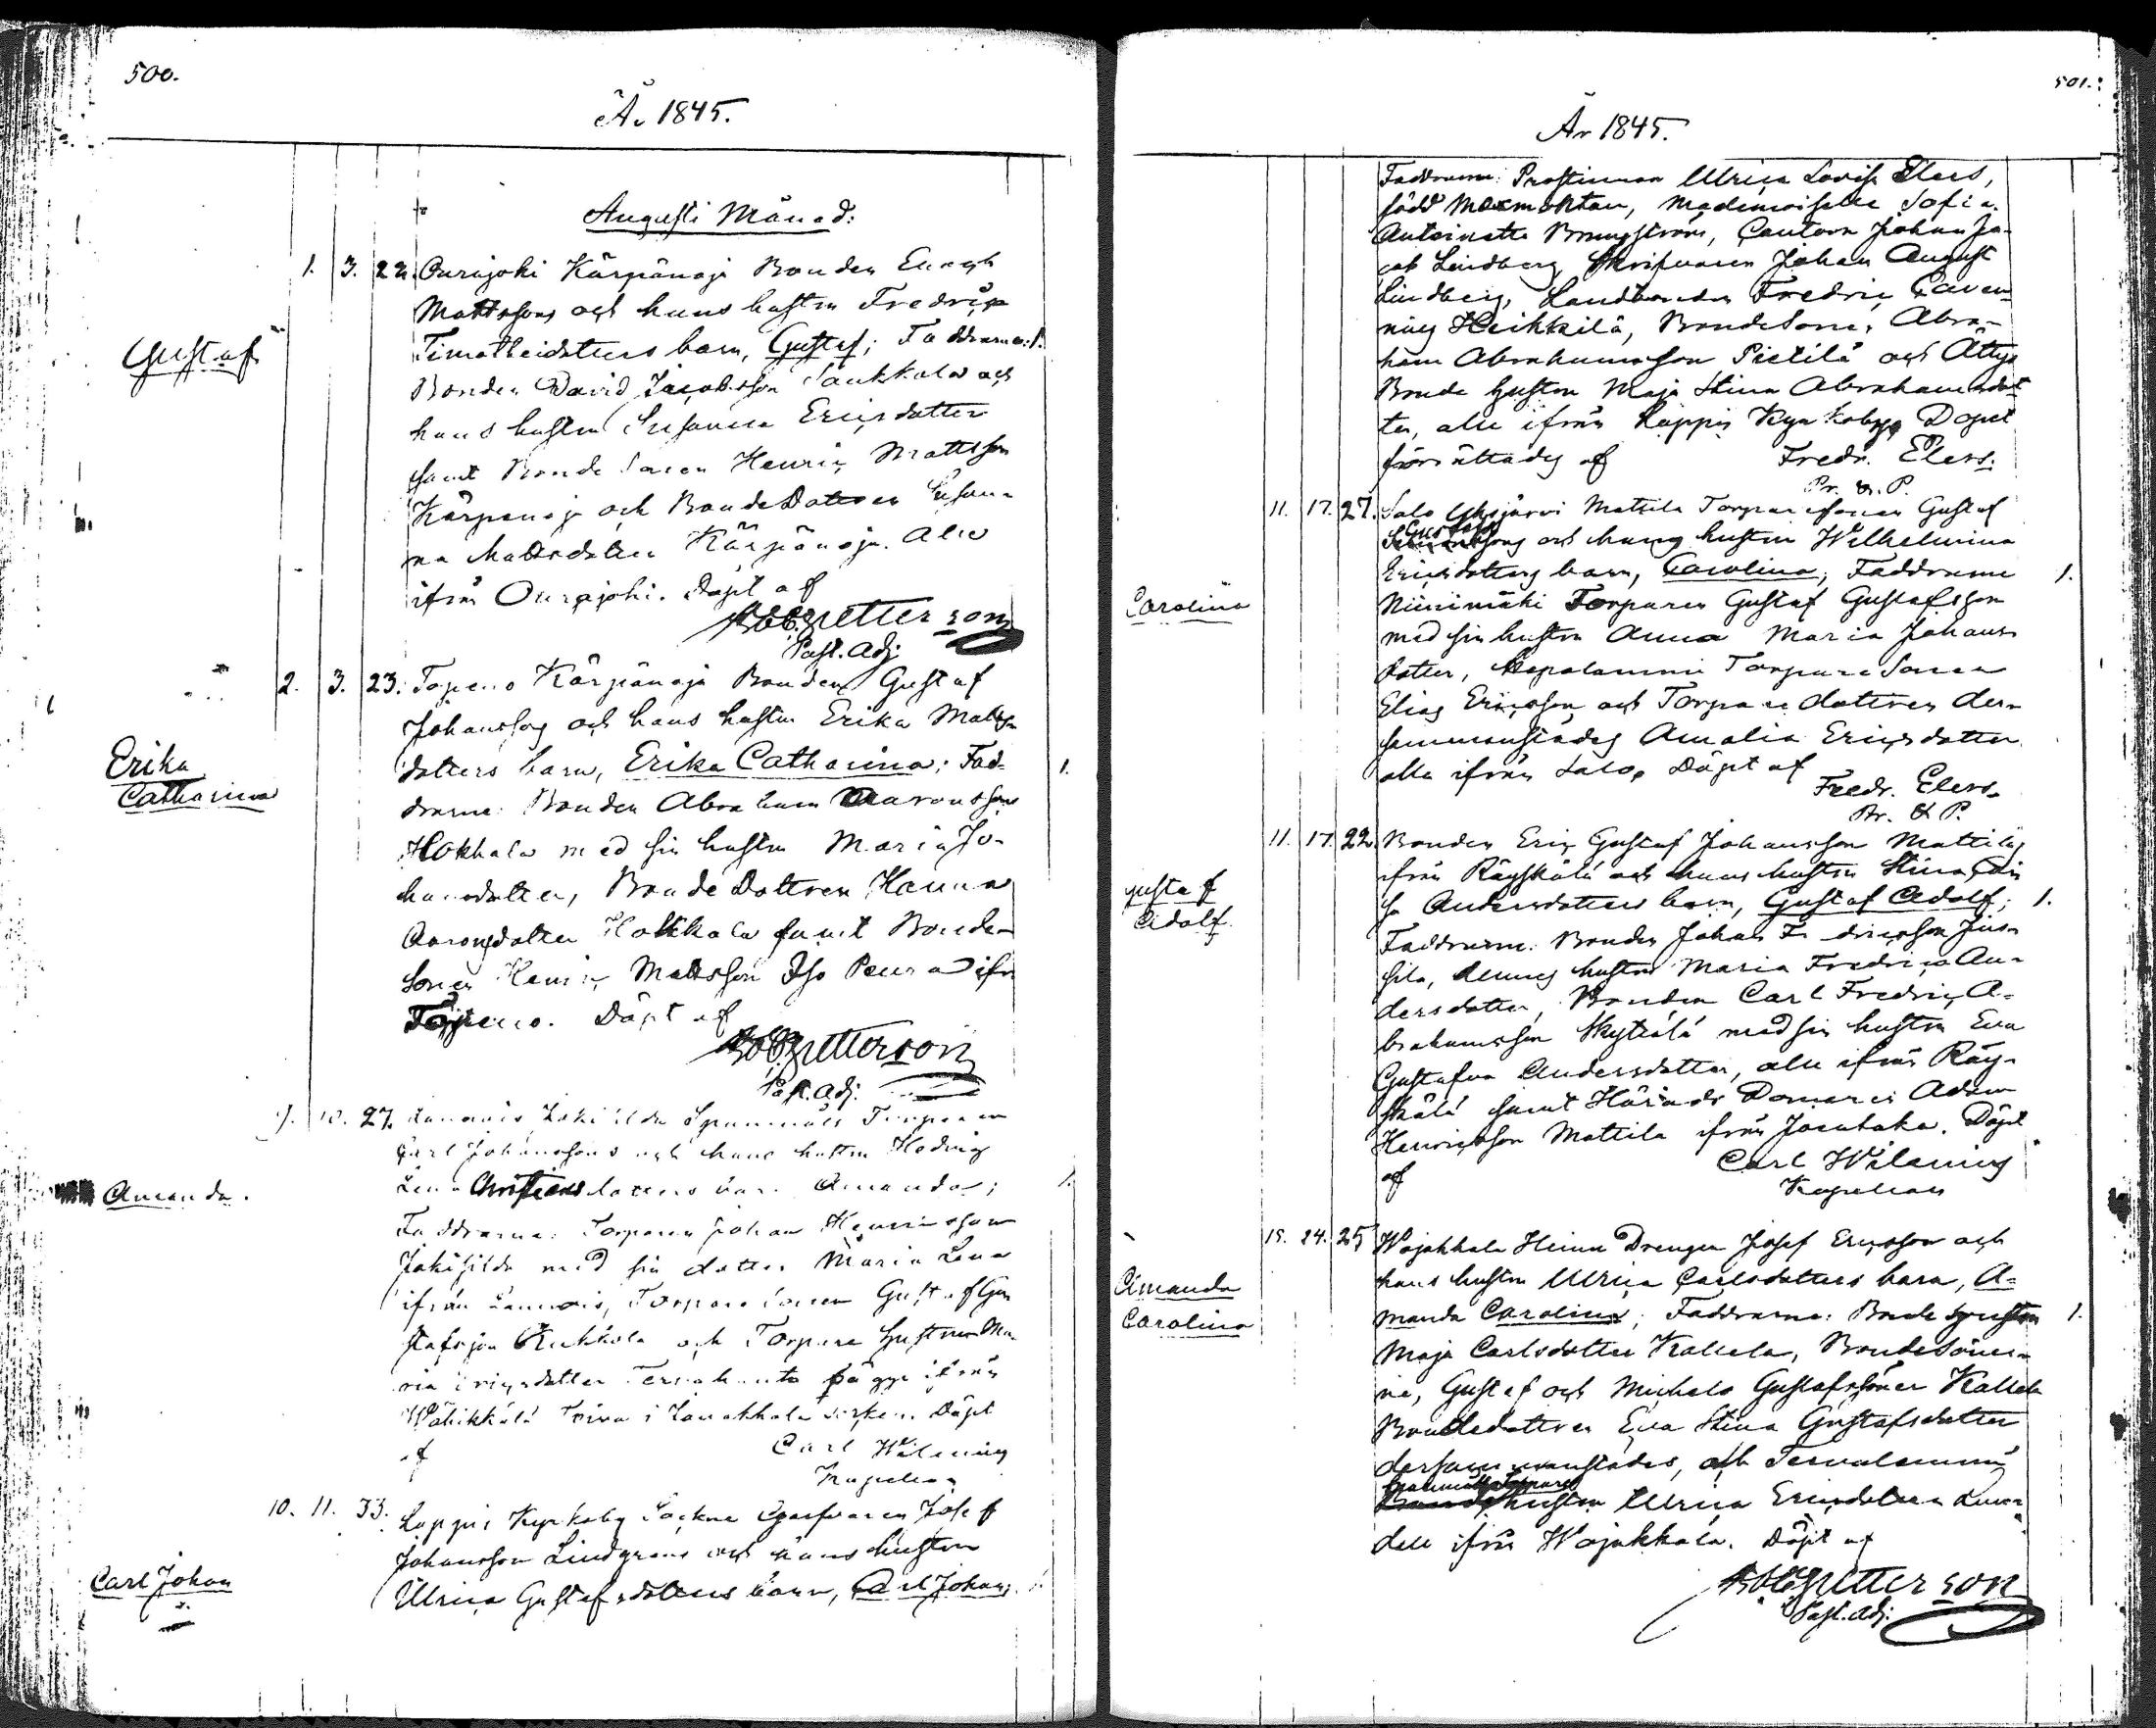 500.
År 1845.
Augusti Månad:
1. 3. 22. Ourajoki Kärpänoja Bonden Enoch
Mattssons och hans hustru Fredrica
Gustaf
Timotheidotters barn, Gustaf; Faddrarne: 1.
Bonden David Jacobsson Saukkola och
hans hustru Susanna Ericsdotter
samt Bonde Sonen Henric Mattsson
Kärpänoja och Bonde Dottren Susan-
na Mattsdotter Kärpänoja. Alla
ifrån Ourajoki. Döpt af
Petterson
Past. Adj.
2. 3. 23. Topeno Kärpänoja Bonden Gustaf
Johanssons och hans hustru Erika Matts
Erika
Catharina
dotters barn, Erika Catharina; Fad- 1.
drarne: Bonden Abraham Aaronsson
Hokkala med sin hustru Maria Jo-
hansdotter, Bonde Dottren Hanna
Aaronsdotter Hokkala samt Bonde-
Sonen Henric Mattsson Iso Peura ifrån
Topeno. Döpt af
Petterson
Past. Adj.
10. 27. Torparen
Carl Johanssons och hans hustru Hedvig
Amanda.
Lena Christiansdotters barn Amanda; 1.
Faddrarne: Torparen Johan Henricsson
med sin dotter Maria Lena
ifrån Launois, Torpare Sonen Gustaf Gu-
stafsson och Torpare hustrun Ma-
ria Ericsdotter bägge ifrån
Wähikkälä i Janakkala Socken. Döpt
af Carl Wilenius
Kapellan
10. 11. 33. Loppis Kyrkoby Sockne Josef
Johansson Lindgrens och hans hustru
Carl Johan
Ulrica Gustafsdotters barn, Carl Johan; 1.
501.
År 1845.
Faddrarne: Prostinnan Ulrica Lovisa Elers,
född Maxmontan, Mademoiselle Sofia
Antoinette Bremström, Cantorn Johan Ja-
cob Lindberg, Skrifvaren Johan August
Lindberg, Landbonden Fredric Caven-
nius Heikkilä, Bondesonen Abra-
ham Abrahamsson Pietilä och Ättys
Bonde hustru Maja Stina Abrahamsdot-
ter, alla ifrån Loppis Kyrkoby. Dopet
förrättades af Fredr. Elers.
Pr. & P.
11. 17. 27. Salo Yksjärvi Mattila Torparesonen Gustaf
Gustafssons och hans hustru Wilhelmina
Carolina
Ericsdotters barn, Carolina; Faddrarne 1.
Niinimäki Torparen Gustaf Gustafsson
med sin hustru Anna Maria Johans
dotter, Hepolammi Torpare Sonen
Elias Ericsson, och Torpare dottren der-
sammanstädes Amalia Ericsdotter
alla ifrån Salo, Döpt af
Fredr. Elers.
Pr. & P.
11. 17. 22. Bonden Eric Gustaf Johansson Mattilas
ifrån Räyskälä och hans hustru Stina Cai-
Gustaf
Adolf.
sa Andersdotters barn, Gustaf Adolf; 1.
Faddrarne: Bonden Johan Fredricsson Jus-
sila, dennes hustru Maria Fredrica An-
dersdotter, Bonden Carl Fredric A-
brahamsson Skyttälä med sin hustru Eva
Gustafva Andersdotter, alla ifrån Räy-
skälä samt Härads Domaren Adam
Henricsson Mattila ifrån Joentaka. Döpt
af Carl Wilenius
Kapellan
15. 24. 25. Wojakkala Heinu Drengen Josef Ericsson och
hans hustru Ulrica Carlsdotters barn, A-
Amanda
Carolina
manda Carolina; Faddrarne: Bonde hustru 1.
Maja Carlsdotter Kallela, Bondesöner-
ne, Gustaf och Michels Gustafssöner Kallela
Bondedottren Eva Stina Gustafsdotter
dersammanstädes, och Tervalammi
hustru Ulrica Ericsdotter
alla ifrån Wojakkala. Döpt af
Petterson
Past. Adj.